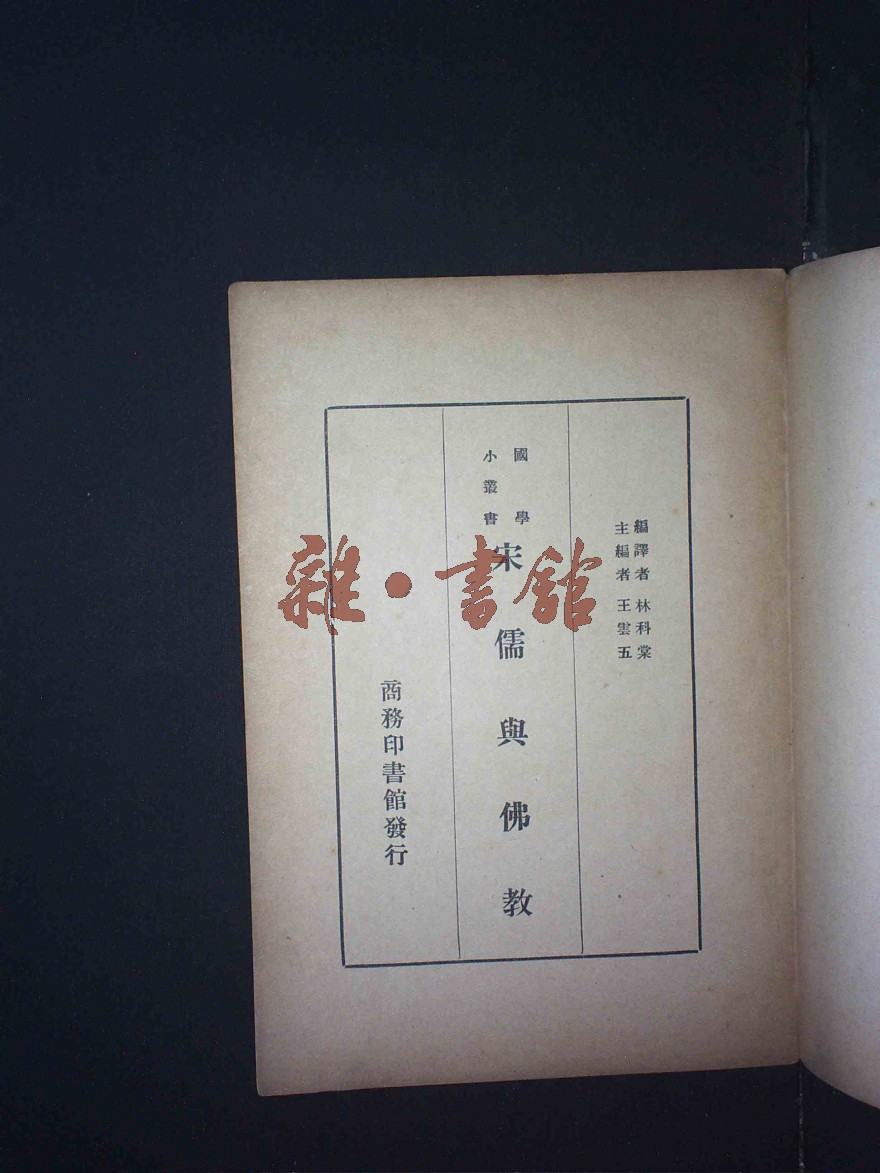 編譯者 林科棠
主編者 王雲五
國學
小叢書
宋儒與佛教
商務印書館發行
雜·書館